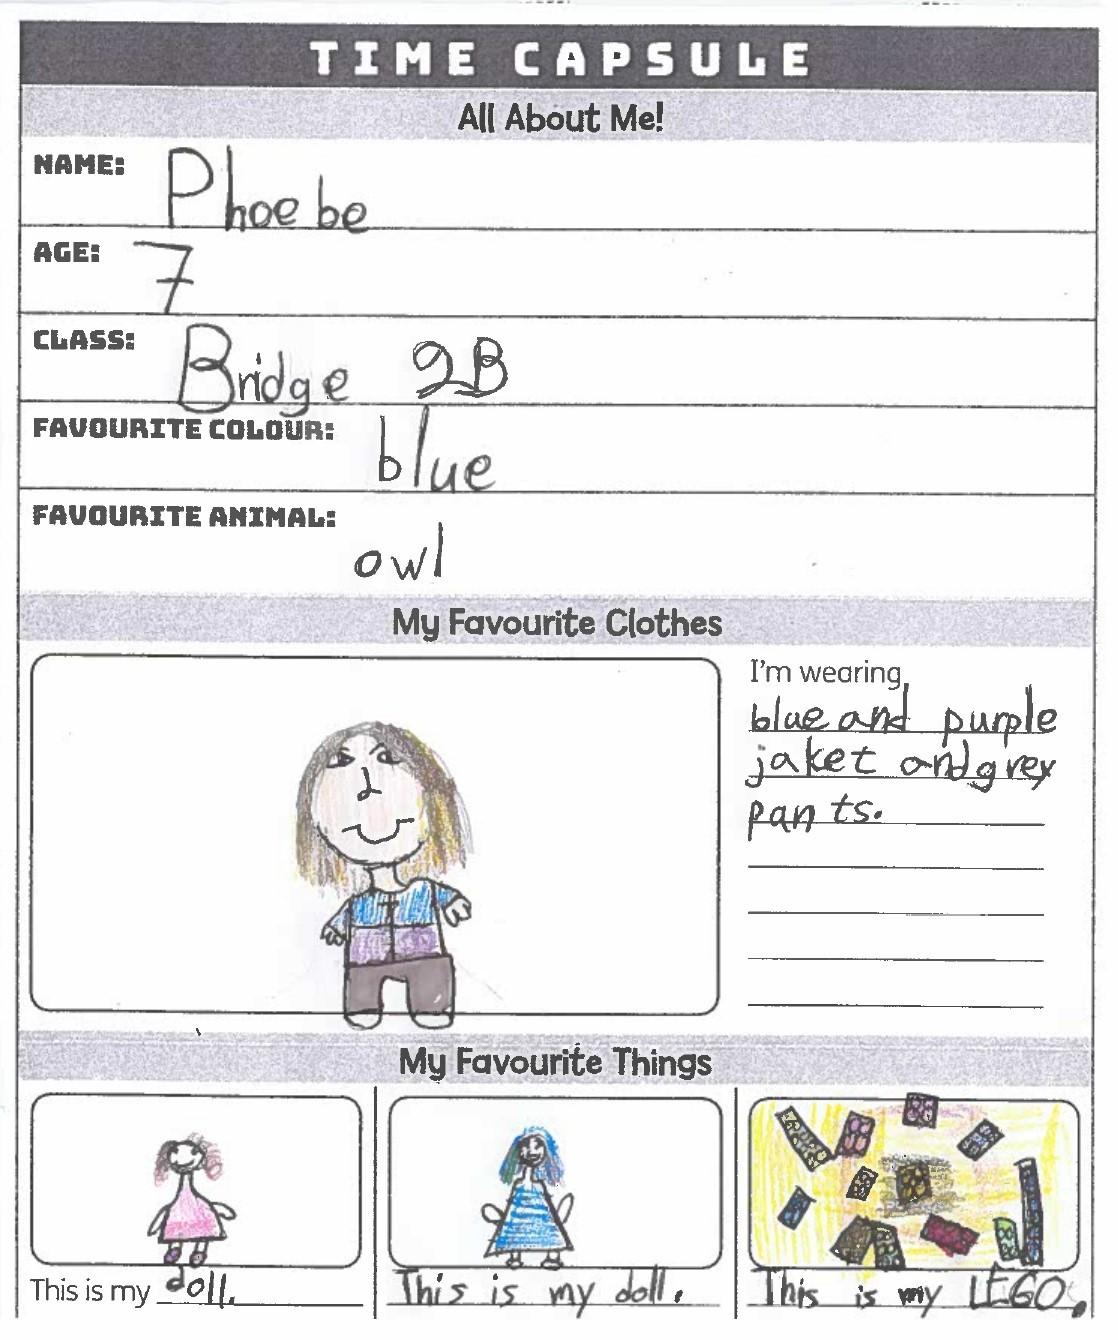 TIME CAPSULE
All About Me!
NAME: Phoebe
AGE: 7
CLASS: Bridge 2B
FAVOURITE COLOUR: blue
FAVOURITE ANIMAL: owl
My Favourite Clothes
I'm wearing
blue and purple
jaket and grey
pants.
My Favourite Things
This is my doll.
This is my doll.
This is my LEGO.